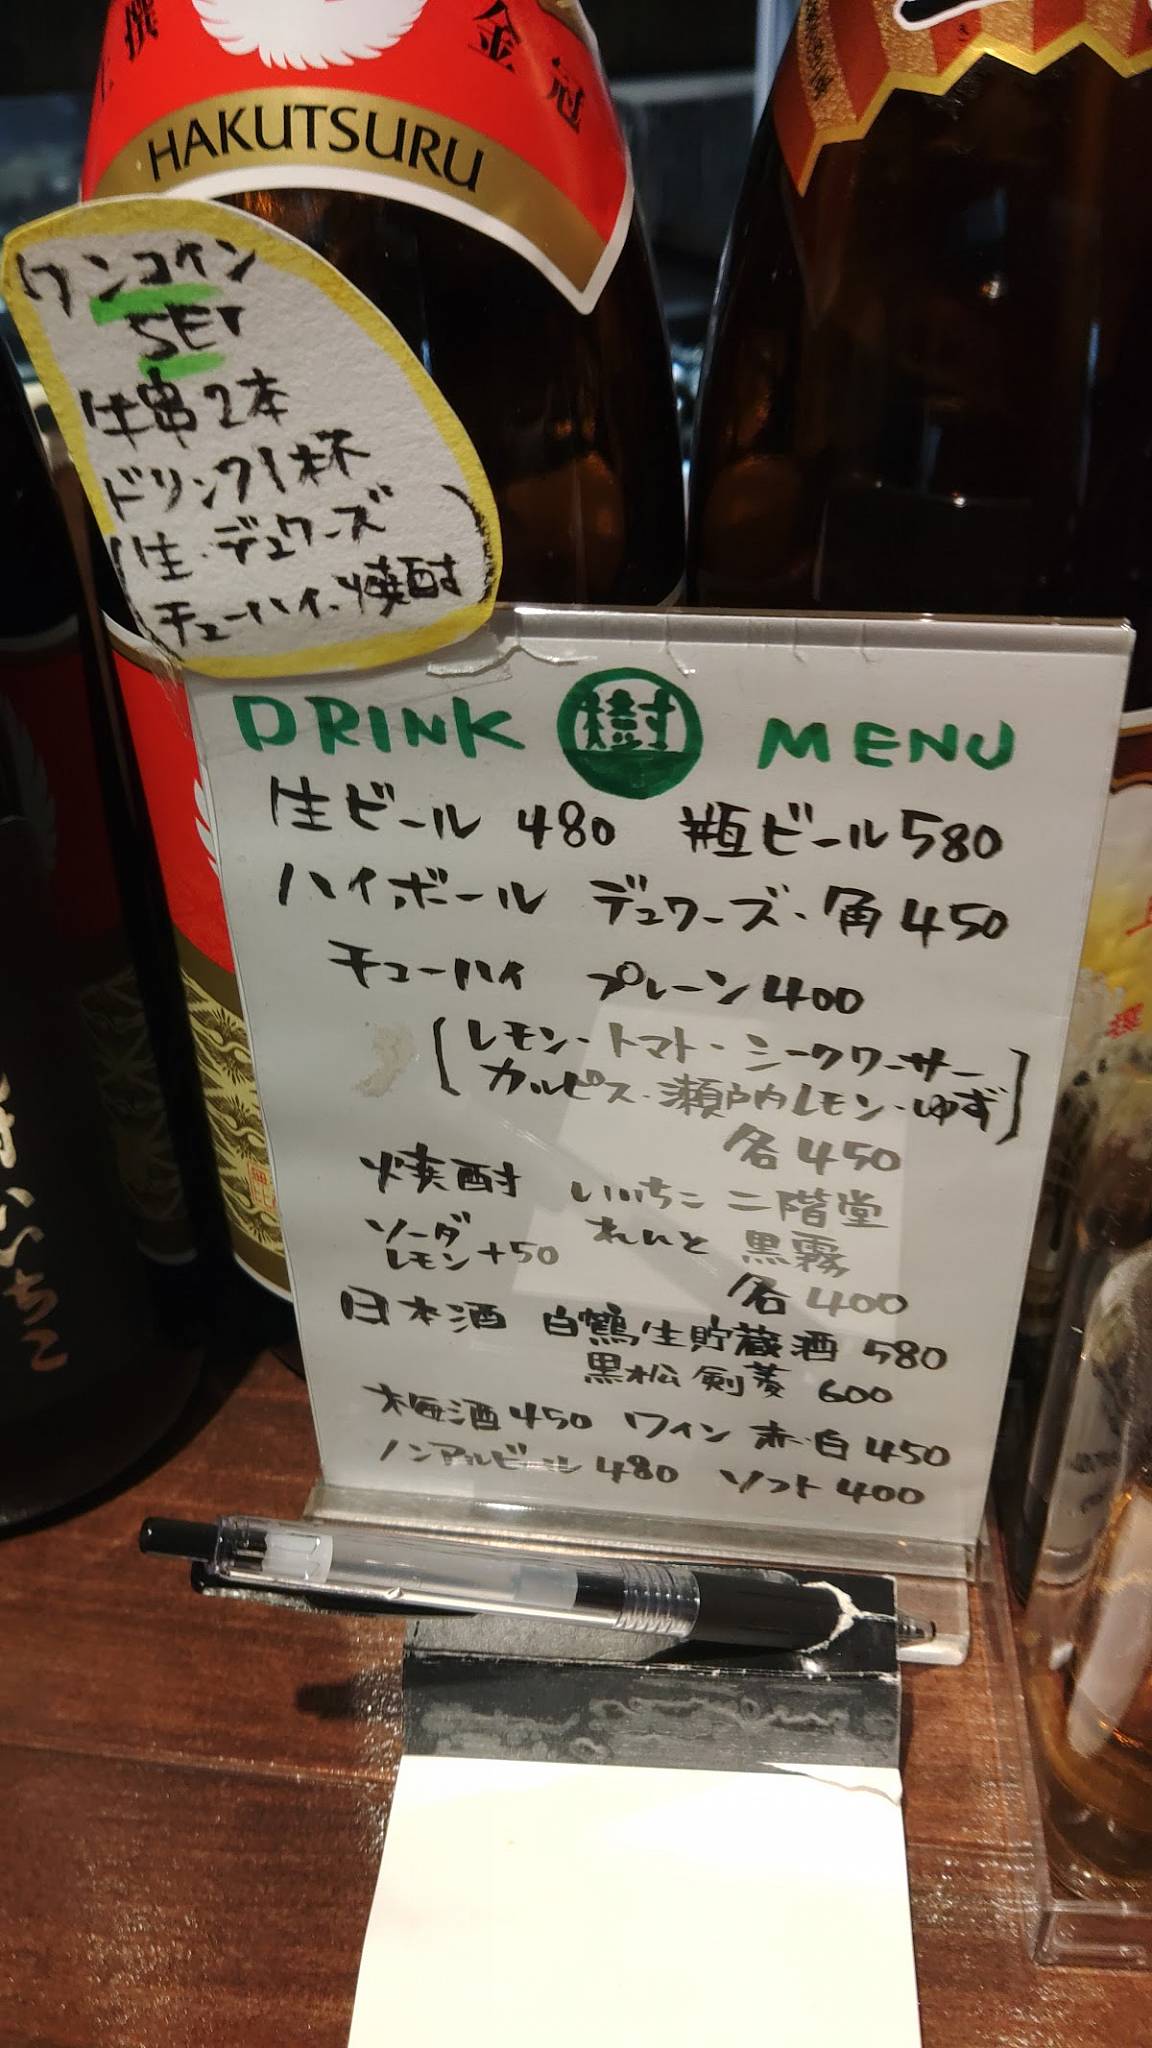 金冠
HAKUTSURU
ワンコイン
SET
牛串2本
ドリンク1杯
(生・デュワーズ
チューハイ・焼酎)
DRINK 樹 MENU
生ビール 480 瓶ビール580
ハイボール デュワーズ・角450
チューハイ プレーン400
[レモン・トマト・シークワーサー
カルピス・瀬戸内レモン・ゆず]
各450
焼酎 いいちこ 二階堂
ソーダ れんと 黒霧
レモン+50
各400
日本酒 白鶴生貯蔵酒 580
黒松剣菱 600
梅酒450 ワイン 赤・白450
ノンアルビール480 ソフト400
いいちこ